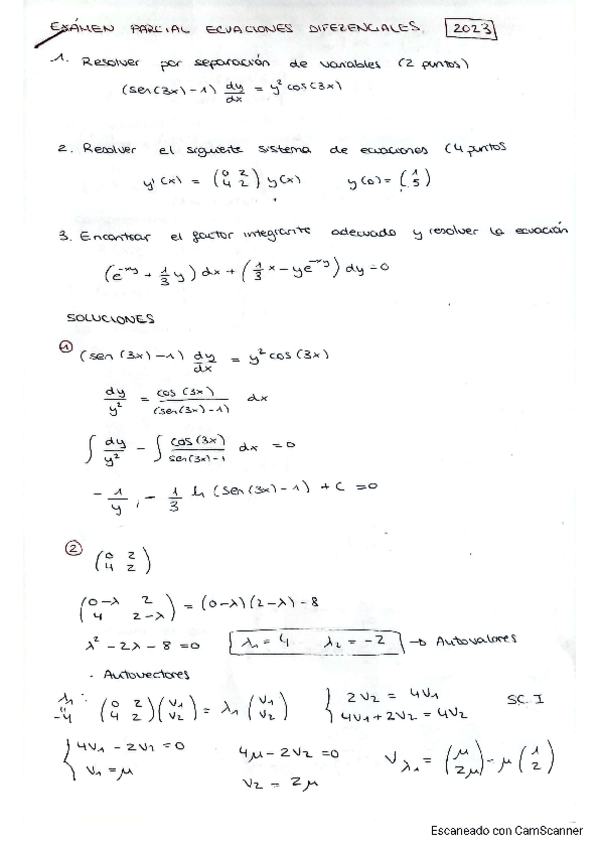 EXÁMEN PARCIAL ECUACIONES DIFERENCIALES. 2023
1. Resolver por separación de variables (2 puntos)
(sen(3x)-1) dy/dx = y² cos(3x)
2. Resolver el siguiente sistema de ecuaciones (4 puntos
y'(x) = (0 2 / 4 2) y(x)   y(0) = (1 / 5)
3. Encontrar el factor integrante adecuado y resolver la ecuación
(e^-xy + 1/3 y) dx + (1/3 x - ye^-xy) dy = 0
SOLUCIONES
① (sen(3x)-1) dy/dx = y² cos(3x)
dy/y² = cos(3x)/(sen(3x)-1) dx
∫ dy/y² - ∫ cos(3x)/sen(3x)-1 dx = 0
-1/y - 1/3 ln(sen(3x)-1) + C = 0
② (0 2 / 4 2)
(0-λ 2 / 4 2-λ) = (0-λ)(2-λ) - 8
λ² - 2λ - 8 = 0   λ₁ = 4   λ₂ = -2 → Autovalores
· Autovectores
λ₁ = 4 : (0 2 / 4 2)(V₁ / V₂) = λ₁ (V₁ / V₂)   { 2V₂ = 4V₁ / 4V₁ + 2V₂ = 4V₂   SC.I
{ 4V₁ - 2V₂ = 0 / V₁ = μ   4μ - 2V₂ = 0   V₂ = 2μ   V_λ₁ = (μ / 2μ) - μ (1 / 2)
Escaneado con CamScanner